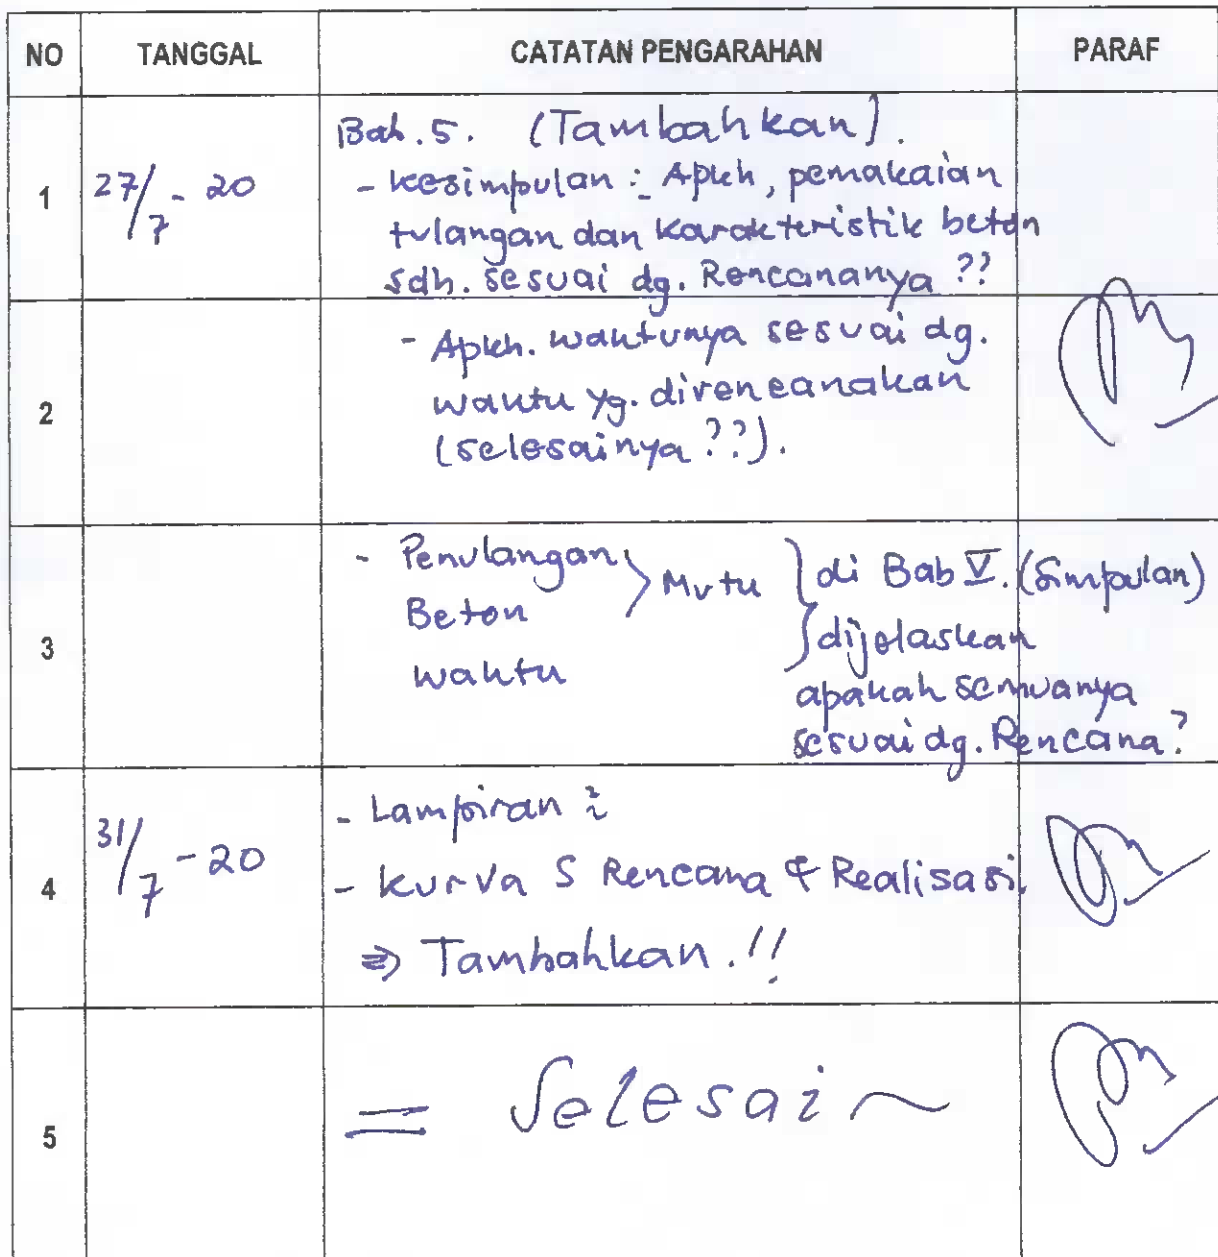 NO TANGGAL CATATAN PENGARAHAN PARAF
1 27/7 - 20 Bab. 5. (Tambahkan).
- kesimpulan : Apkh, pemakaian
tulangan dan karakteristik beton
sdh. sesuai dg. Rencananya ??
2 - Apkh. waktunya sesuai dg.
waktu yg. direncanakan
(selesainya ??).
3 - Penulangan
Beton
waktu
Mutu
di Bab V. (Simpulan)
dijelaskan
apakah semuanya
sesuai dg. Rencana?
4 31/7 - 20 - Lampiran :
- Kurva S Rencana & Realisasi
⇒ Tambahkan.!!
5 = Selesai ~